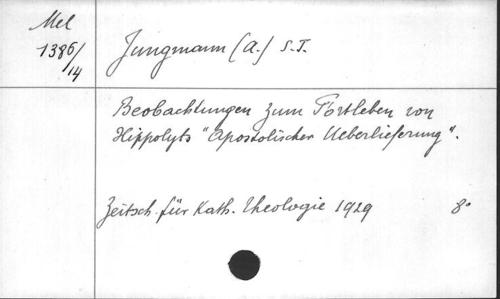 Mel
1386/14
Jungmann (A.) S.J.
Beobachtungen zum Fortleben von
Hippolyts "Apostolischer Ueberlieferung".
Zeitsch. für Kath. Theologie 1929 8°